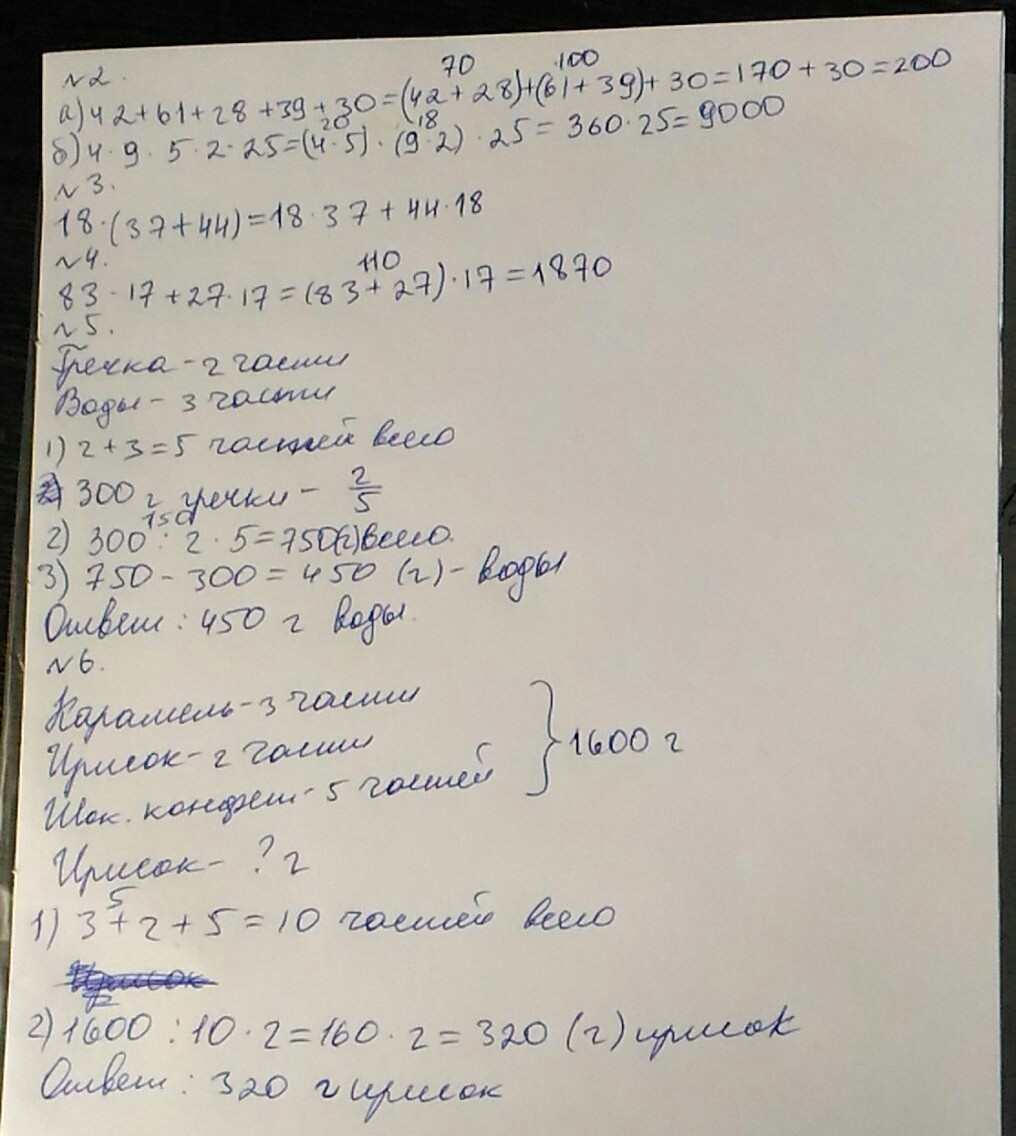 №2.
70 100
а) 42+61+28+39+30=(42+28)+(61+39)+30=170+30=200
20 18
б) 4·9·5·2·25=(4·5)·(9·2)·25=360·25=9000
№3.
18·(37+44)=18·37+44·18
№4.
110
83·17+27·17=(83+27)·17=1870
№5.
Гречка - 2 части
Воды - 3 части
1) 2+3=5 частей всего
300 г гречки - 2/5
150
2) 300:2·5=750(г)всего.
3) 750-300=450 (г)- воды
Ответ: 450 г воды.
№6.
Карамель-3 части
Ирисок-2 части
Шок. конфет-5 частей
} 1600 г
Ирисок-?г
5
1) 3+2+5=10 частей всего
Ирисок
2) 1600:10·2=160·2=320 (г) ирисок
Ответ: 320 г ирисок